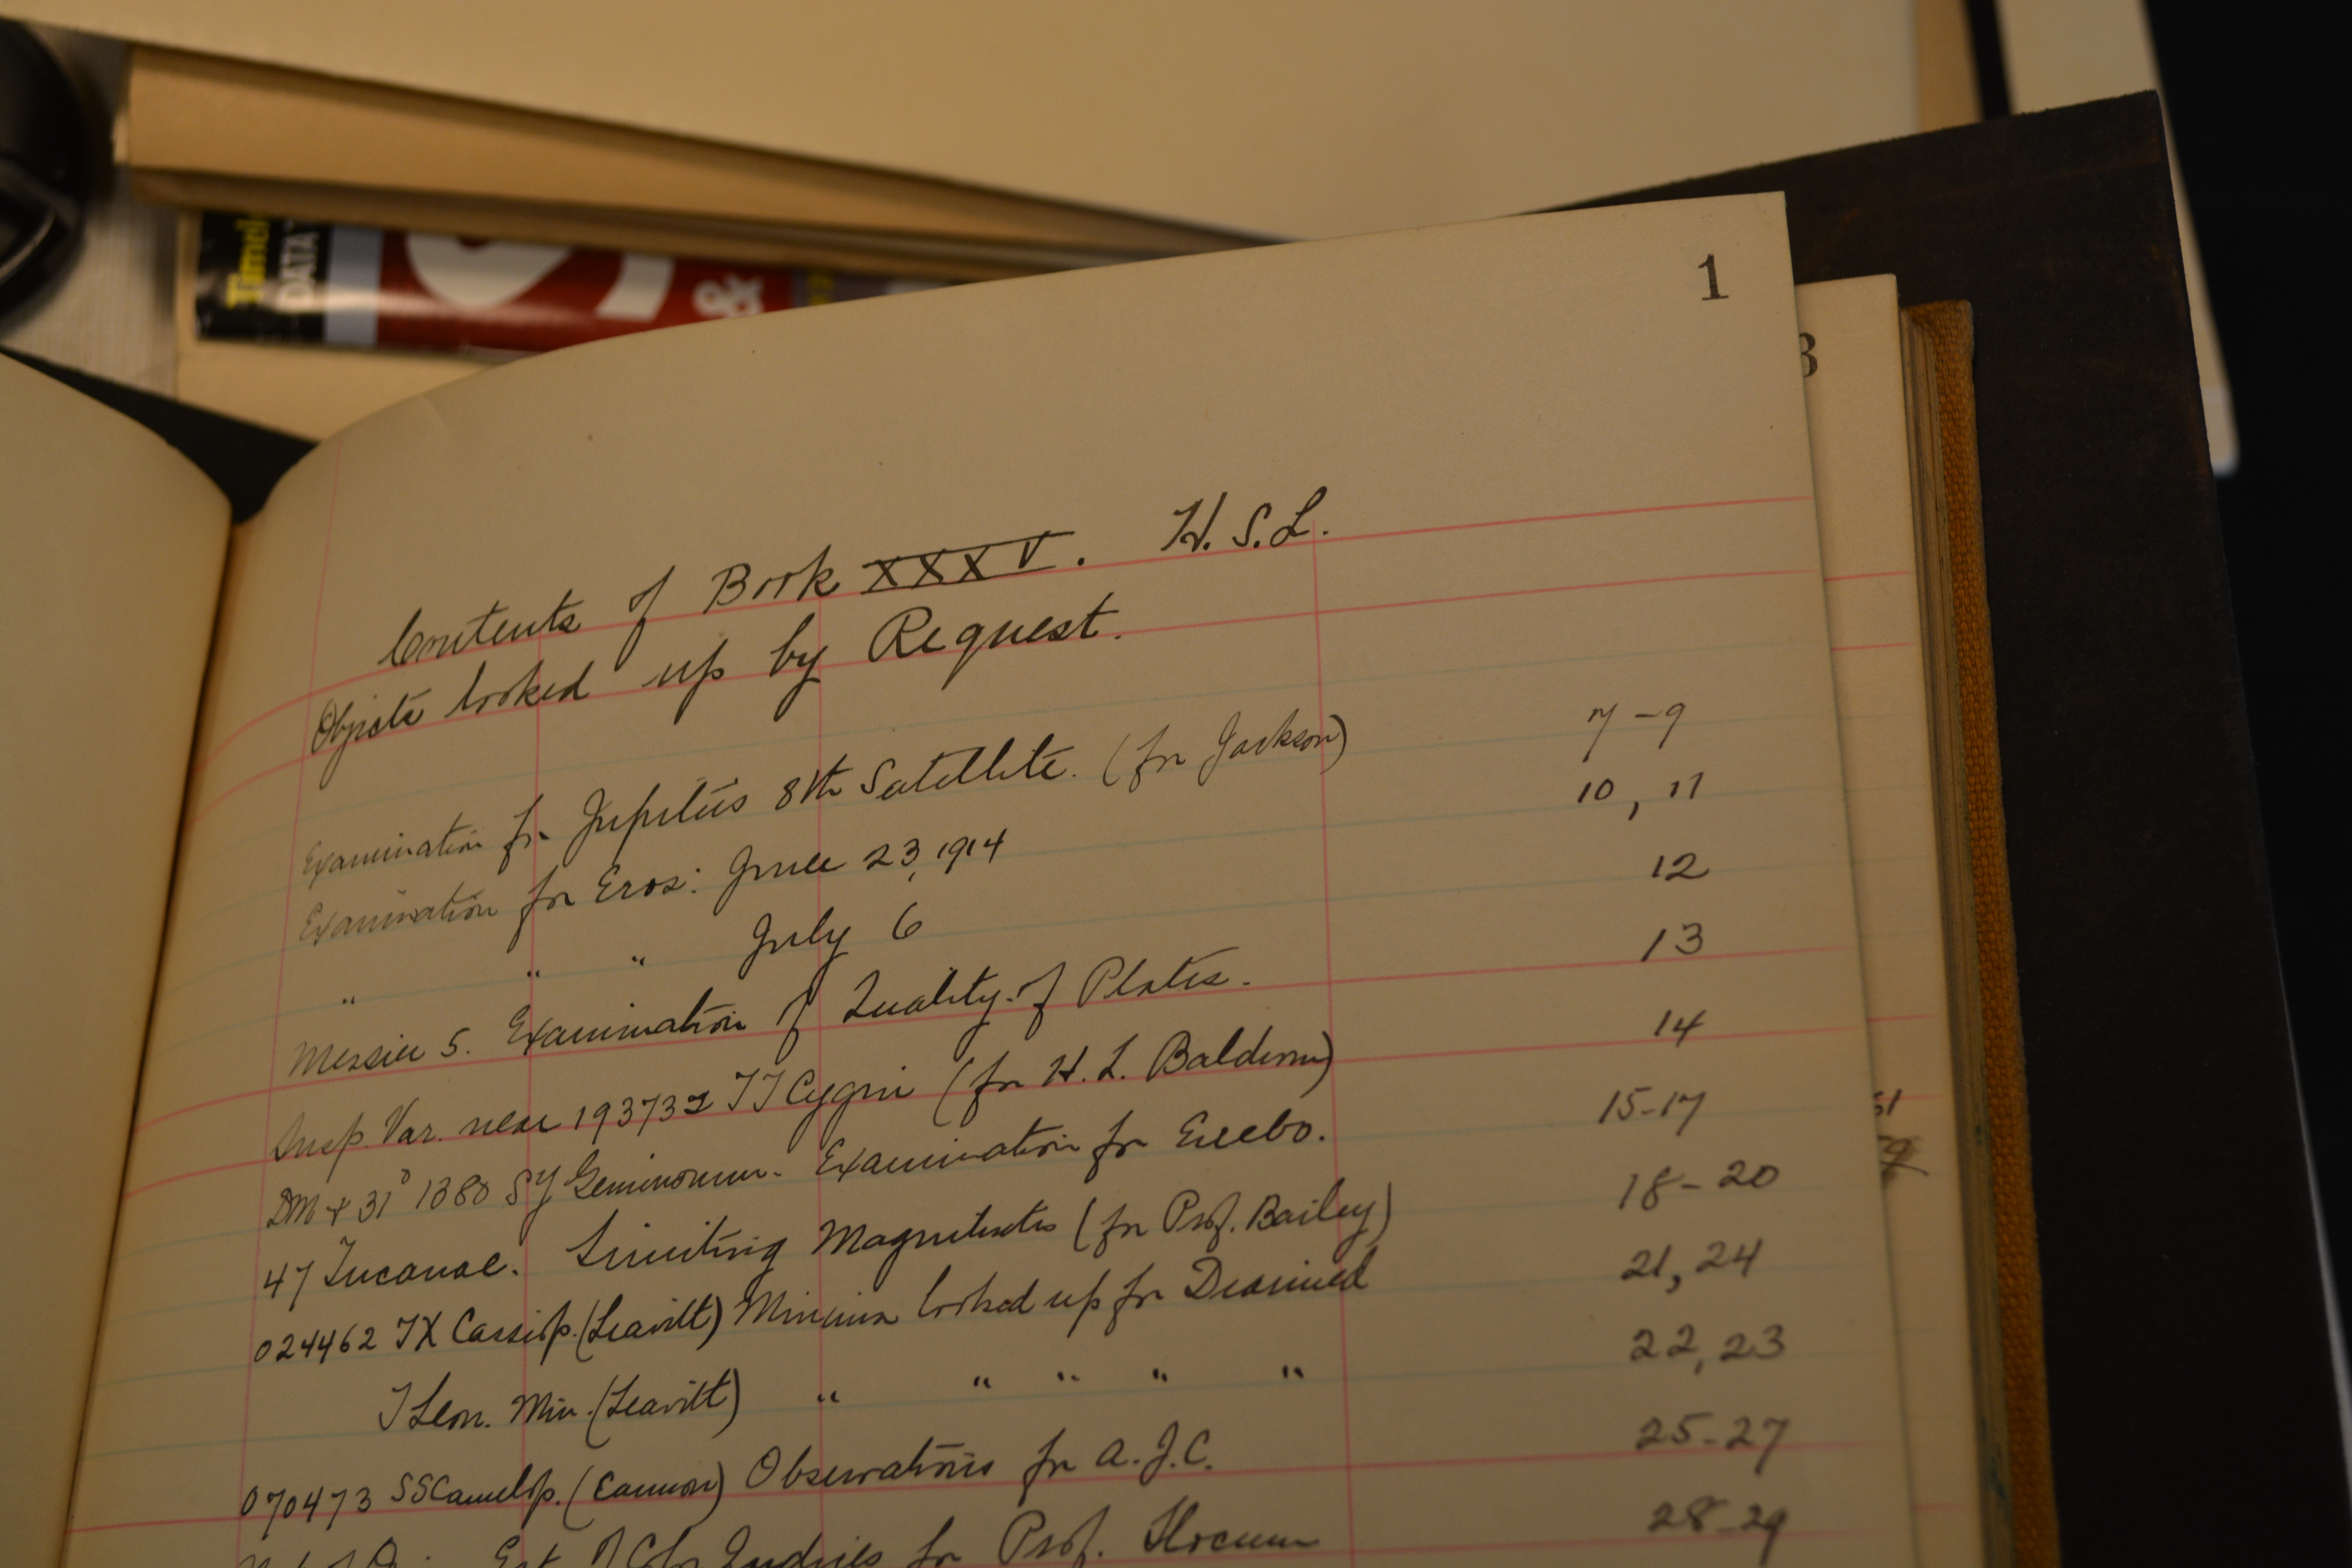 Timel
DATA
&
1
3
Contents of Book XXXV. H.S.L.
Objects looked up by Request.
Examination for Jupiter's 8th Satellite. (for Jackson) 7-9
Examination for Eros: June 23, 1914 10, 11
" " " July 6 12
Messier 5. Examination of Quality of Plates. 13
Susp. Var. near 193732 TT Cygni (for H. L. Baldwin) 14
DM + 31° 1388 SY Geminorum. Examination for Enebo. 15-17
47 Tucanae. Limiting Magnitudes (for Prof. Bailey) 18-20
024462 TX Cassiop. (Leavitt) Minima looked up for 21, 24
T Leon. Min. (Leavitt) " " " " " 22, 23
070473 SS Camelop. (Cannon) Observations for A.J.C. 25-27
of Indices for Prof. Slocum 28-29